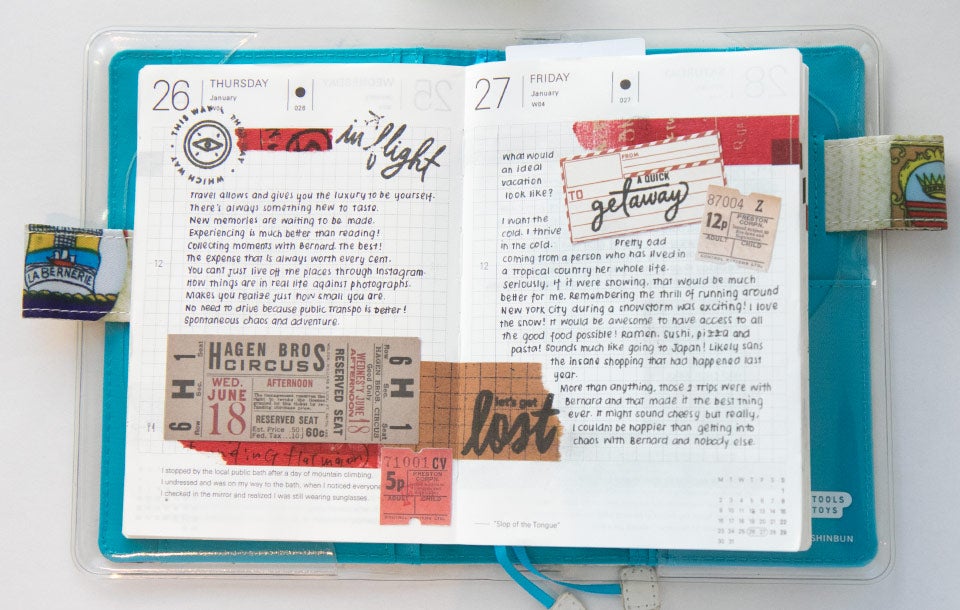 26 THURSDAY
January
W04
026
THIS WAY · THAT WAY · WHICH WAY ·
in flight
Travel allows and gives you the luxury to be yourself.
There's always something new to taste.
New memories are waiting to be made.
Experiencing is much better than reading!
Collecting moments with Bernard. The best!
The expense that is always worth every cent.
You cant just live off the places through Instagram.
How things are in real life against photographs.
Makes you realize just how small you are.
No need to drive because public transpo is better!
Spontaneous chaos and adventure.
12
LA BERNERIE
6 Row H Sec. 1 Seat
HAGEN BROS
CIRCUS
WED.
JUNE
18
AFTERNOON
RESERVED SEAT
Est. Price .50
Fed. Tax ..10
60c
RESERVED SEAT
AFTERNOON
WEDNES'Y JUNE 18
Good Only
HAGEN BROS. CIRCUS
Row 6
Sec. H
Seat 1
14
71001 CV
5p
PRESTON
CORPN.
ADULT
CHILD
I stopped by the local public bath after a day of mountain climbing.
I undressed and was on my way to the bath, when I noticed everyone
I checked in the mirror and realized I was still wearing sunglasses.
27 FRIDAY
January
W04
027
What would
an ideal
vacation
look like?
FROM
TO
A QUICK
getaway
87004 Z
12p
PRESTON
CORPN.
ADULT
CHILD
I want the
cold. I thrive
in the cold.
Pretty odd
coming from a person who has lived in
a tropical country her whole life.
Seriously. If it were snowing, that would be much
better for me. Remembering the thrill of running around
New York City during a snowstorm was exciting! I love
the snow! It would be awesome to have access to all
the good food possible! Ramen, sushi, pizza and
pasta! Sounds much like going to Japan! Likely sans
the insane shopping that had happened last
year.
More than anything, those 2 trips were with
Bernard and that made it the best thing
ever. It might sound cheesy but really,
I couldn't be happier than getting into
chaos with Bernard and nobody else.
12
let's get
lost
"Slop of the Tongue"
M T W T F S S
TOOLS
TOYS
SHINBUN